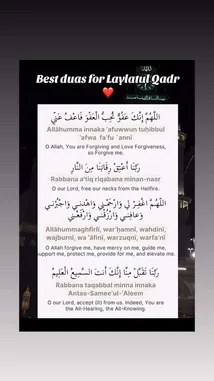 Best duas for Laylatul Qadr
❤️
اللَّهُمَّ إِنَّكَ عَفُوٌّ تُحِبُّ الْعَفْوَ فَاعْفُ عَنِّي
Allāhumma innaka 'afuwwun tuḥibbul
'afwa fa'fu 'annī
O Allah, You are Forgiving and Love Forgiveness,
so Forgive me.
رَبَّنَا أَعْتِقْ رِقَابَنَا مِنَ النَّارِ
Rabbana a'tiq riqabana minan-naar
O our Lord, free our necks from the Hellfire.
اللَّهُمَّ اغْفِرْ لِي وَارْحَمْنِي وَاهْدِنِي وَاجْبُرْنِي
وَعَافِنِي وَارْزُقْنِي وَارْفَعْنِي
Allāhummaghfirlī, war'ḥamnī, wahdinī,
wajburnī, wa 'āfinī, warzuqnī, warfa'nī
O Allah forgive me, have mercy on me, guide me,
support me, protect me, provide for me, and elevate me.
رَبَّنَا تَقَبَّلْ مِنَّا إِنَّكَ أَنتَ السَّمِيعُ الْعَلِيمُ
Rabbana taqabbal minna innaka
Antas-Samee'ul-'Aleem
O our Lord, accept (it) from us. Indeed, You are
the All-Hearing, the All-Knowing.